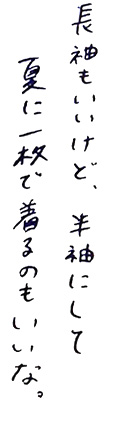 長袖もいいけど、半袖にして
夏に一枚で着るのもいいな。